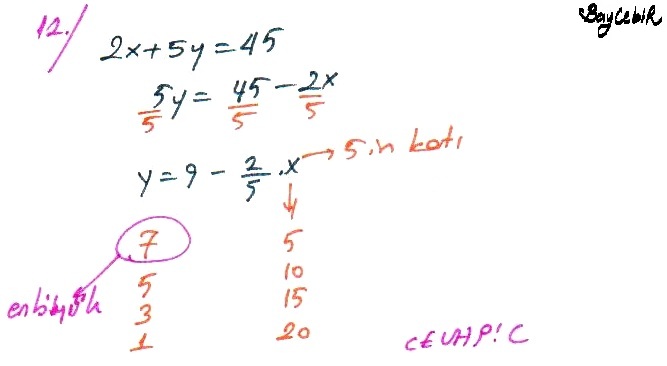 BayCebiR
12./
2x+5y=45
5y/5 = 45/5 - 2x/5
y=9 - 2/5 .x → 5 in katı
7 5
5 10
en büyük 3 15
1 20
CEVAP: C